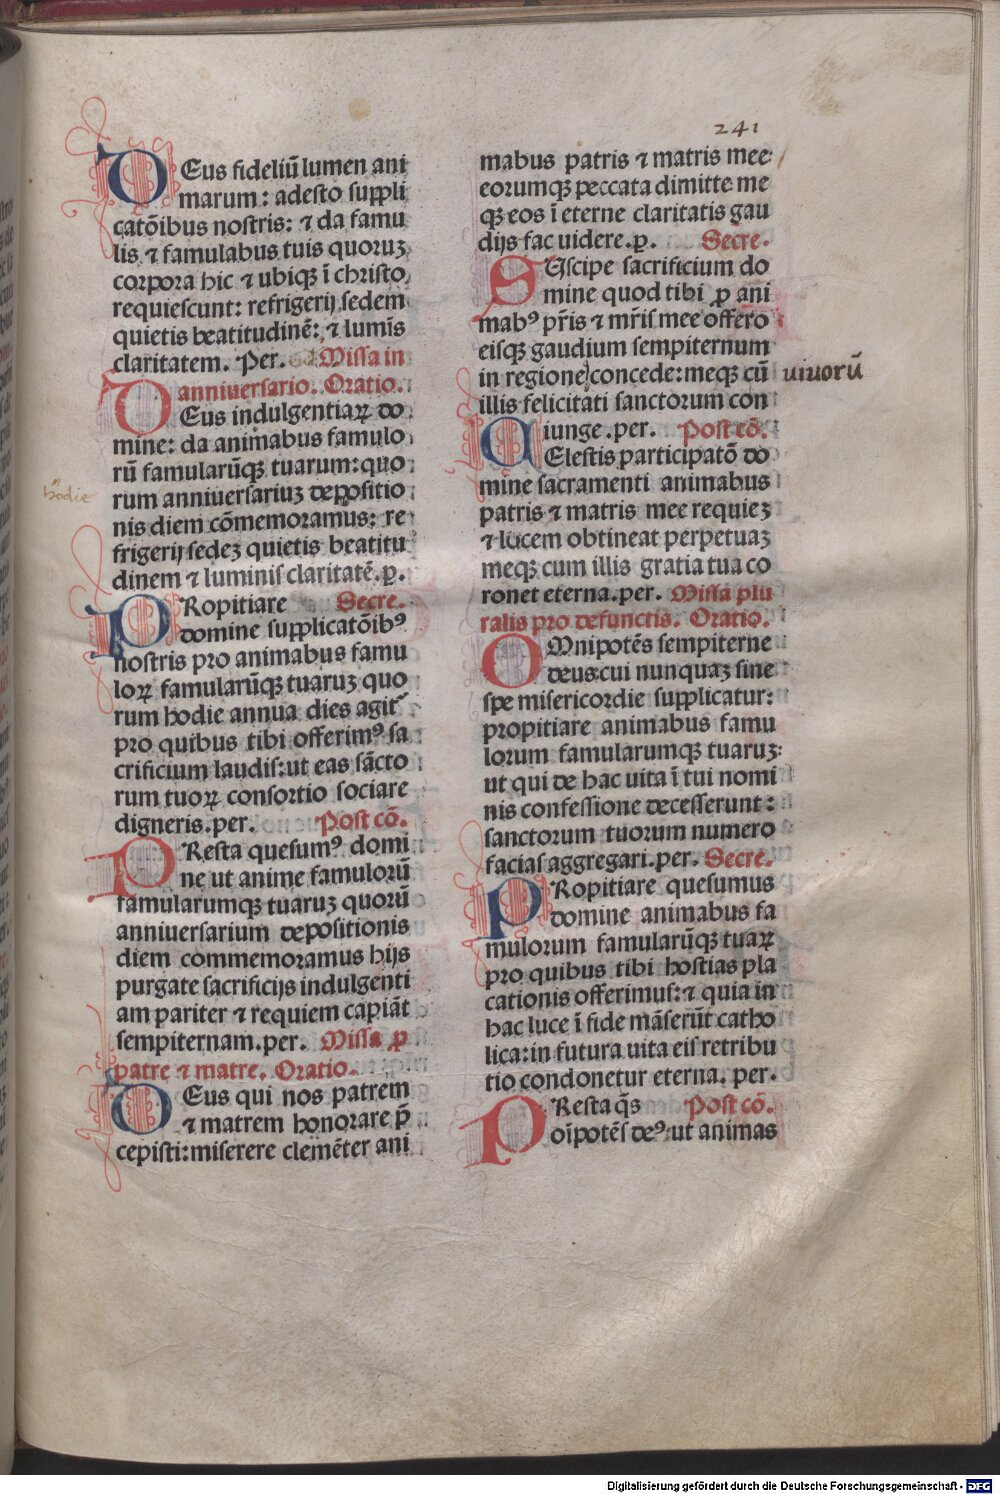 241
DEus fideliū lumen ani
marum: adesto suppli
catōibus nostris: ⁊ da famu
lis ⁊ famulabus tuis quoruꝫ
corpora hic ⁊ ubiqꝫ ī christo
requiescunt: refrigerij sedem
quietis beatitudinē: ⁊ lumīs
claritatem. Per. Missa in
anniuersario. Oratio.
DEus indulgentiaꝝ do
mine: da animabus famulo
rū famularūqꝫ tuarum: quo
hodie
rum anniuersariuꝫ depositio
nis diem cōmemoramus: re
frigerij sedeꝫ quietis beatitu
dinem ⁊ luminis claritatē. p̲.
PRopitiare Secre.
domine supplicatōibꝰ
nostris pro animabus famu
loꝝ famularūqꝫ tuaruꝫ quo
rum hodie annua dies agit᷑
pro quibus tibi offerimꝰ sa
crificium laudis: ut eas sācto
rum tuoꝝ consortio sociare
digneris. per. Post cō.
PResta quesumꝰ domi
ne ut anime famulorū
famularumqꝫ tuaruꝫ quorū
anniuersarium depositionis
diem commemoramus hijs
purgate sacrificijs indulgenti
am pariter ⁊ requiem capiāt
sempiternam. per. Missa ꝓ
patre ⁊ matre. Oratio.
DEus qui nos patrem
⁊ matrem honorare p̄
cepisti: miserere clemēter ani
mabus patris ⁊ matris mee
eorumqꝫ peccata dimitte me
qꝫ eos ī eterne claritatis gau
dijs fac uidere. p̲. Secre.
SUscipe sacrificium do
mine quod tibi ꝓ ani
mabꝰ pr̄is ⁊ mr̄is mee offero
eisqꝫ gaudium sempiternum
in regione concede: meqꝫ cū uiuorū
illis felicitati sanctorum con
iunge. per. Post cō.
CElestis participatō do
mine sacramenti animabus
patris ⁊ matris mee requieꝫ
⁊ lucem obtineat perpetuaꝫ
meqꝫ cum illis gratia tua co
ronet eterna. per. Missa plu
ralis pro defunctis. Oratio.
OMnipotēs sempiterne
deus: cui nunquaꝫ sine
spe misericordie supplicatur:
propitiare animabus famu
lorum famularumqꝫ tuaruꝫ:
ut qui de hac uita ī tui nomi
nis confessione decesserunt:
sanctorum tuorum numero
facias aggregari. per. Secre.
PRopitiare quesumus
domine animabus fa
mulorum famularūqꝫ tuaꝝ
pro quibus tibi hostias pla
cationis offerimus: ⁊ quia in
hac luce ī fide māserūt catho
lica: in futura uita eis retribu
tio condonetur eterna. per.
PResta q̄s Post cō.
oīpotēs deꝰ ut animas
Digitalisierung gefördert durch die Deutsche Forschungsgemeinschaft - DFG